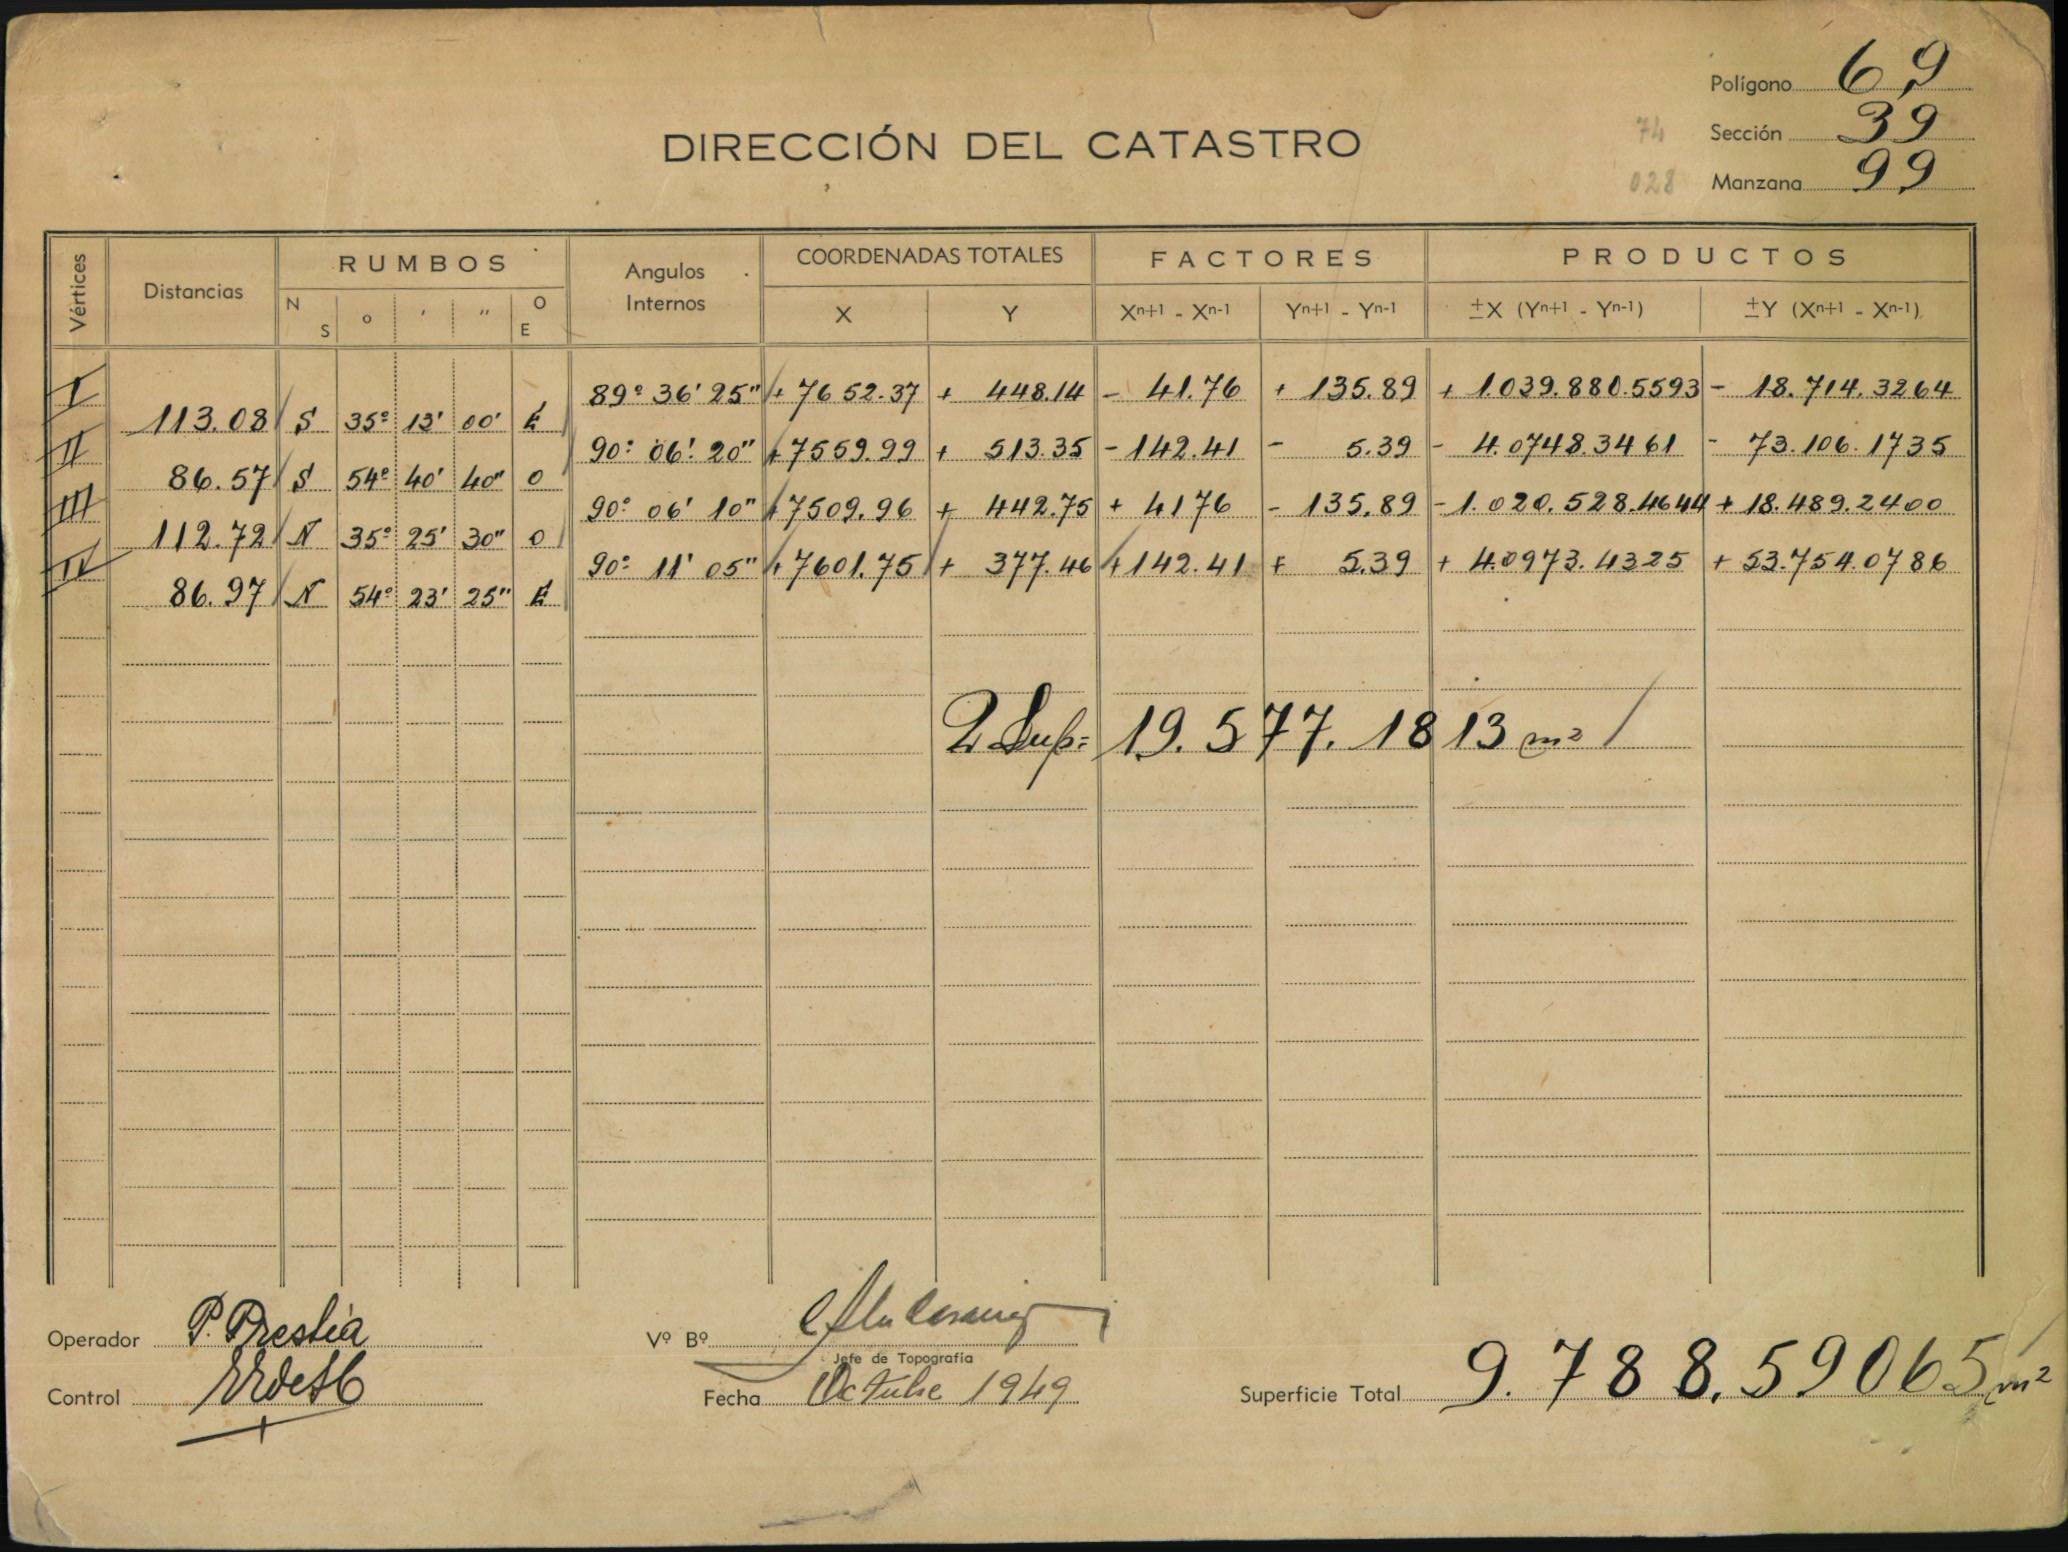 Polígono 69
DIRECCIÓN DEL CATASTRO
74 Sección 39
028 Manzana 99
Vértices Distancias RUMBOS Angulos Internos COORDENADAS TOTALES FACTORES PRODUCTOS
N S o ' " O E X Y Xn+1 - Xn-1 Yn+1 - Yn-1 ±X (Yn+1 - Yn-1) ±Y (Xn+1 - Xn-1)
I 89º 36' 25" + 7652.37 + 448.14 - 41.76 + 135.89 + 1.039.880.5593 - 18.714.3264
113.08 S 35º 13' 00' E
II 90º 06' 20" + 7559.99 + 513.35 - 142.41 - 5.39 - 4.0748.3461 - 73.106.1735
86.57 S 54º 40' 40" O
III 90º 06' 10" + 7509.96 + 442.75 + 4176 - 135.89 - 1.020.528.4644 + 18.489.2400
112.72 N 35º 25' 30" O
IV 90º 11' 05" + 7601.75 + 377.46 + 142.41 + 5.39 + 4.0973.4325 + 53.754.0786
86.97 N 54º 23' 25" E
2 Sup= 19.577.1813 m2
Operador P. Prestia Vº Bº
Jefe de Topografía
Control Fecha Octubre 1949 Superficie Total 9.788.59065 m2